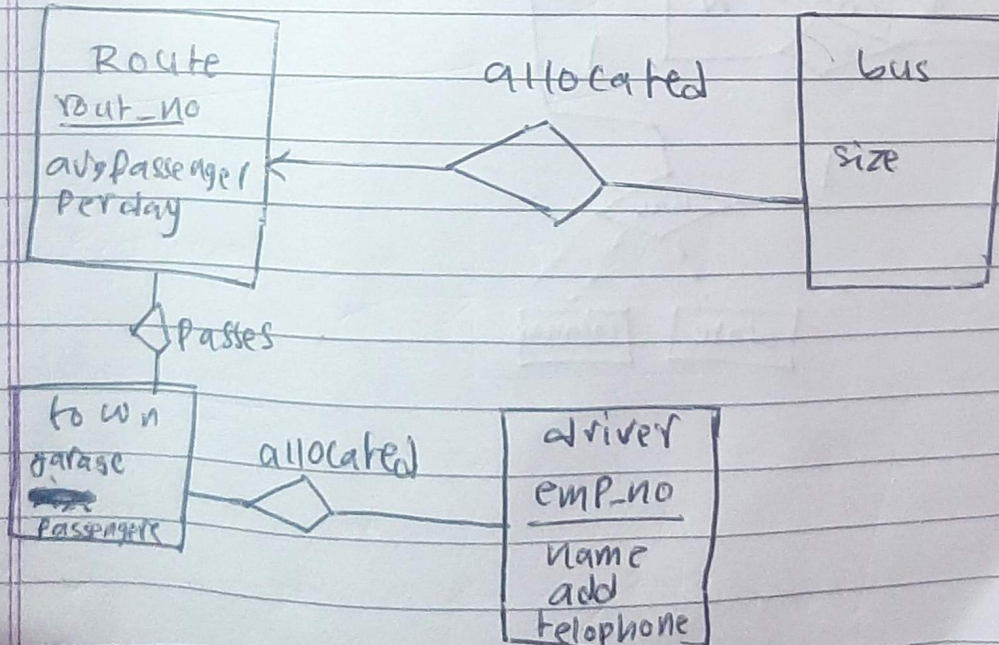 Route
rout_no
avg passenger
Perday
allocated
bus
size
Passes
town
garage
Passengers
allocated
driver
emp_no
name
add
telophone